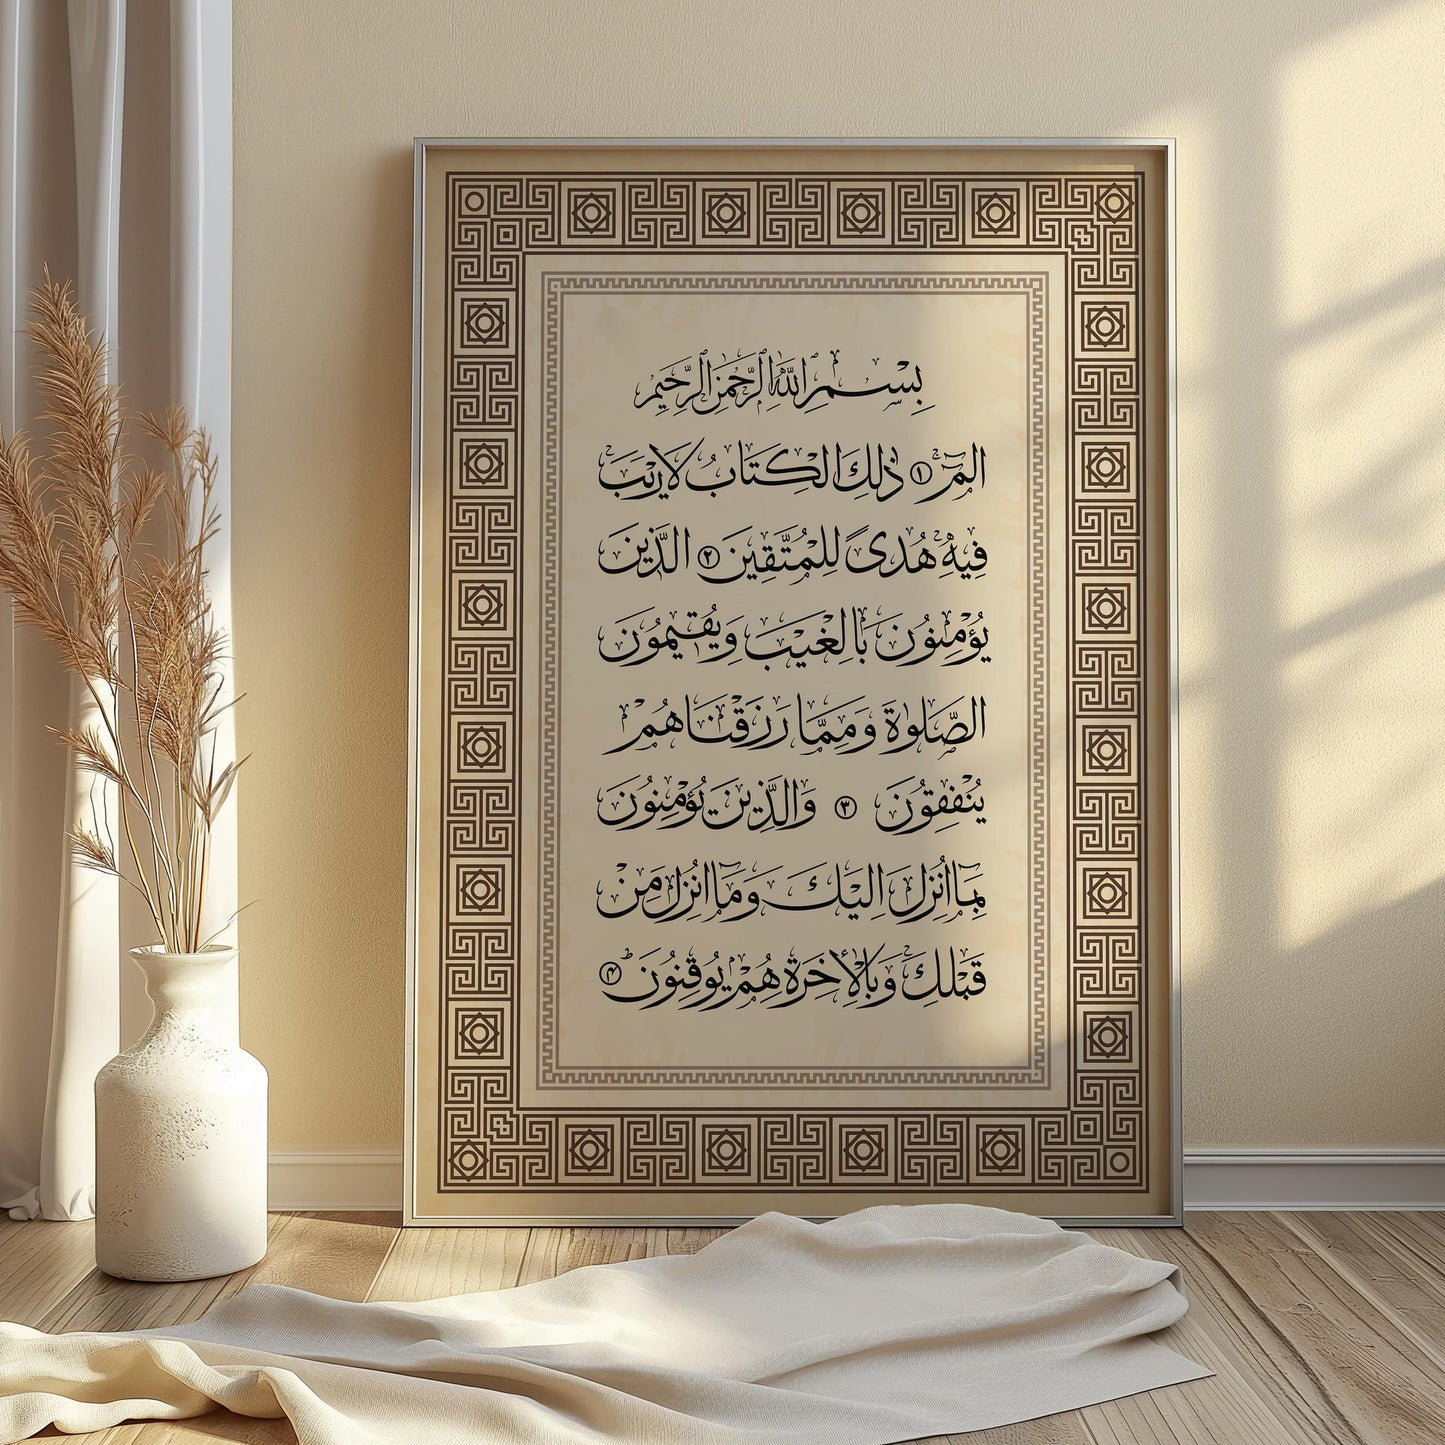 بِسْمِ اللّٰهِ الرَّحْمٰنِ الرَّحِيْمِ
الٓمّٓ ۚ ١ ذٰلِكَ الْكِتَابُ لَا رَيْبَ ۚ
فِيْهِ ۚ هُدًى لِلْمُتَّقِيْنَ ٢ الَّذِيْنَ
يُؤْمِنُوْنَ بِالْغَيْبِ وَيُقِيْمُوْنَ
الصَّلٰوةَ وَمِمَّا رَزَقْنَاهُمْ
يُنْفِقُوْنَ ٣ وَالَّذِيْنَ يُؤْمِنُوْنَ
بِمَآ اُنْزِلَ اِلَيْكَ وَمَآ اُنْزِلَ مِنْ
قَبْلِكَ ۚ وَبِالْاٰخِرَةِ هُمْ يُوْقِنُوْنَ ۜ ٤